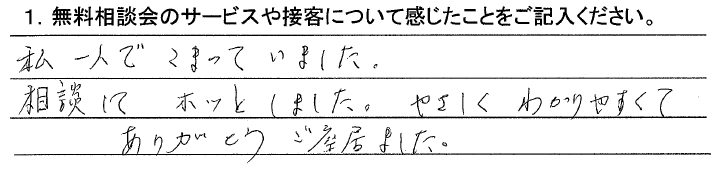 1. 無料相談会のサービスや接客について感じたことをご記入ください。
私一人でこまっていました。
相談してホッとしました。やさしくわかりやすくて
ありがとうご座居ました。